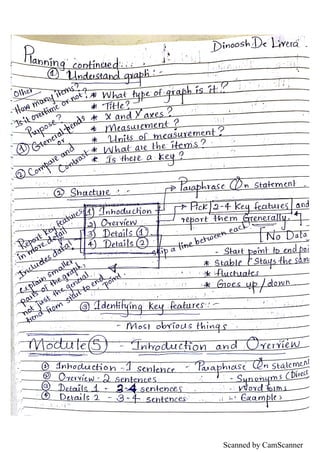 Dinoosh De Livera
Planning continued...
① Understand graph:-
Other
How many items?
Is it overtime or not?
Purpose?
① General trends
or
② Compare and
Contrast
* What type of graph is it?
* Title?
* X and Y axes?
* Measurement?
* Units of measurement?
* What are the items?
* Is there a key?
② Structure:-
Paraphrase Qn statement
1) Introduction
2) Overview
3) Details ①
4) Details ②
Pick 2-4 key features and
report them Generally.
No Data
skip a line between each
Report key features
in more detail
Includes data
explain smaller
parts of the graph
not just the general
trend from start to end
point
- Start point to end poi
* Stable / Stays the sam
* fluctuates
* Goes up / down
③ Identifying key features:-
- Most obvious things
Module ⑤ - Introduction and Overview
① Introduction - 1 sentence - Paraphrase Qn statement
② Overview - 2 sentences - Synonyms (Direct
③ Details 1 - 3-4 sentences - Word forms
④ Details 2 - 3-4 sentences - Examples
Scanned by CamScanner